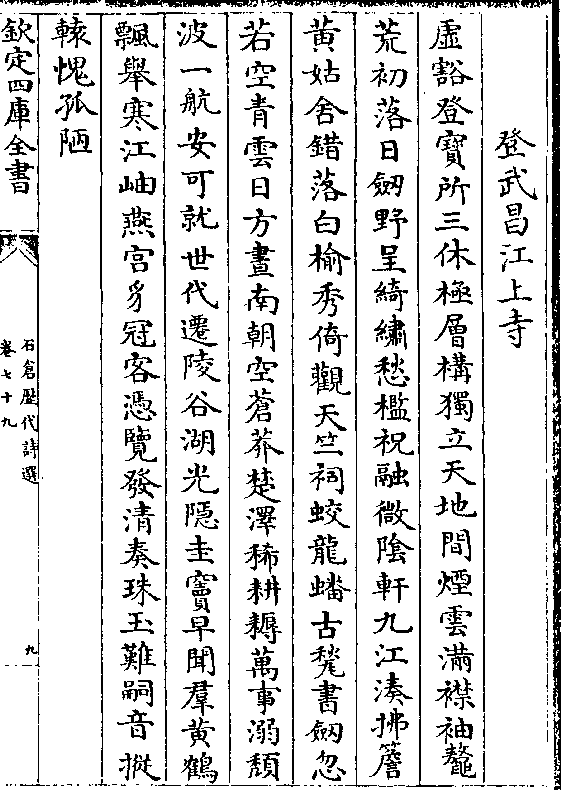 登武昌江上寺
虛豁登寶所三休極層構獨立天地間煙雲滿襟袖鼇
荒初落日劒野呈綺繡愁檻祝融微陰軒九江湊拂簷
黃姑舍錯落白榆秀倚觀天竺祠蛟龍蟠古甃書劒忽
若空青雲日方晝南朝空蒼莽楚澤稀耕耨萬事溺頽
波一航安可就世代遷陵谷湖光隱圭竇早聞羣黃鶴
飄舉寒江岫燕宫豸冠客憑覽發清奏珠玉難嗣音摐
轅愧孤陋
欽定四庫全書
石倉歷代詩選
卷七十九
九